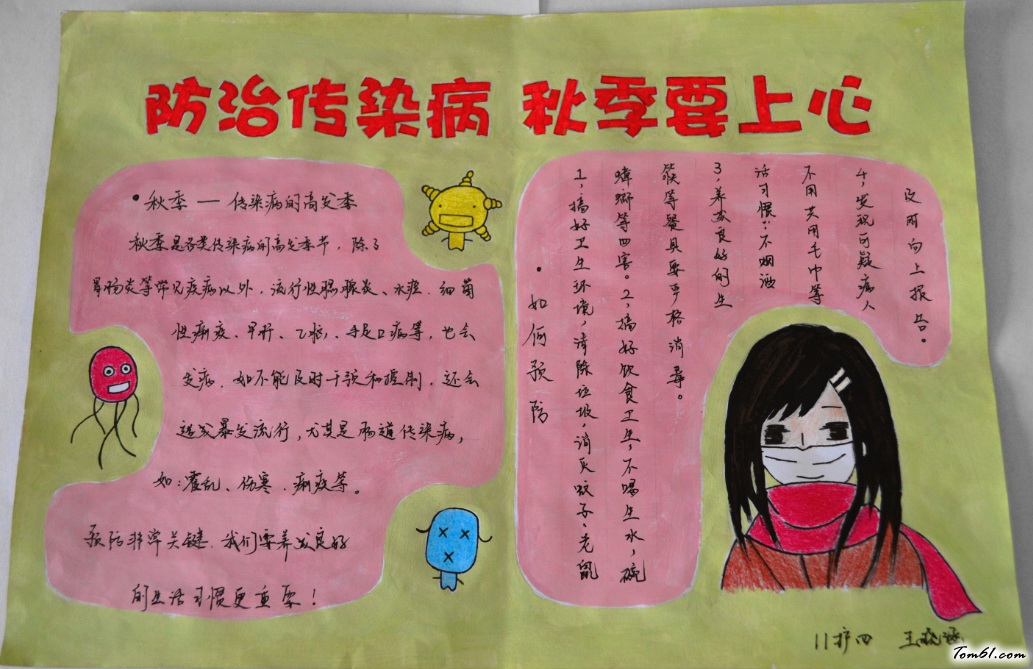 防治传染病 秋季要上心
•秋季 — 传染病的高发季
秋季是各类传染病的高发季节，除了
胃肠炎等常见疾病以外，流行性腮腺炎、水痘、细菌
性痢疾、甲肝、乙脑、手足口病等，也会
发病，如不能及时干预和控制，还会
造成暴发流行，尤其是肠道传染病，
如：霍乱、伤寒、痢疾等。
预防非常关键，我们要养成良好
的生活习惯更重要！
•如何预防
1，搞好卫生环境，清除垃圾，消灭蚊子、老鼠
蟑螂等四害。2，搞好饮食卫生，不喝生水，碗
筷等餐具要严格消毒。
3，养成良好的生
活习惯：不烟酒
不用共用毛巾等
4，发现可疑病人
及时向上报告。
11护四 王晓涵
Tom61.com